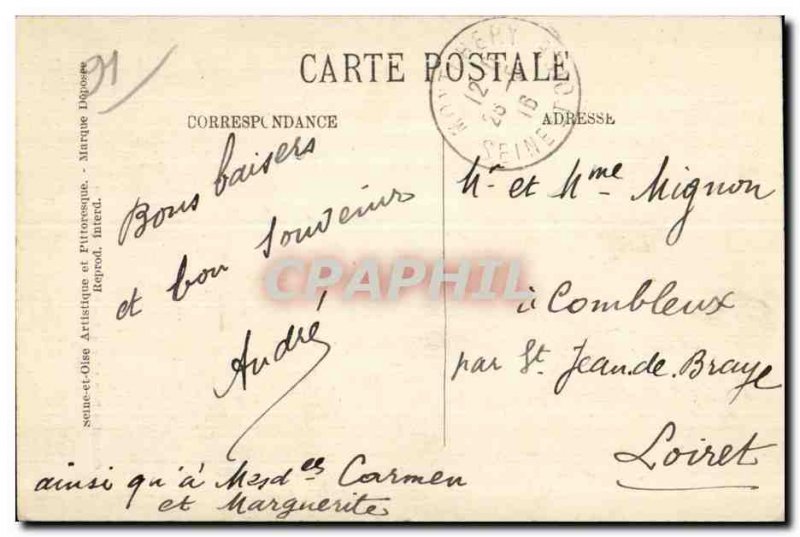 91
CARTE POSTALE
CORRESPONDANCE
ADRESSE
MONTLHERY SEINE-ET-OISE
12
26
16
Seine-et-Oise Artistique et Pittoresque. - Marque Déposée
Reprod. interd.
Bons baisers
et bon souvenir
André
ainsi qu'à Mesdes Carmen
et Marguerite
Mr et Mme Mignon
à Combleux
par St Jean.de.Braye
Loiret
CPAPHIL